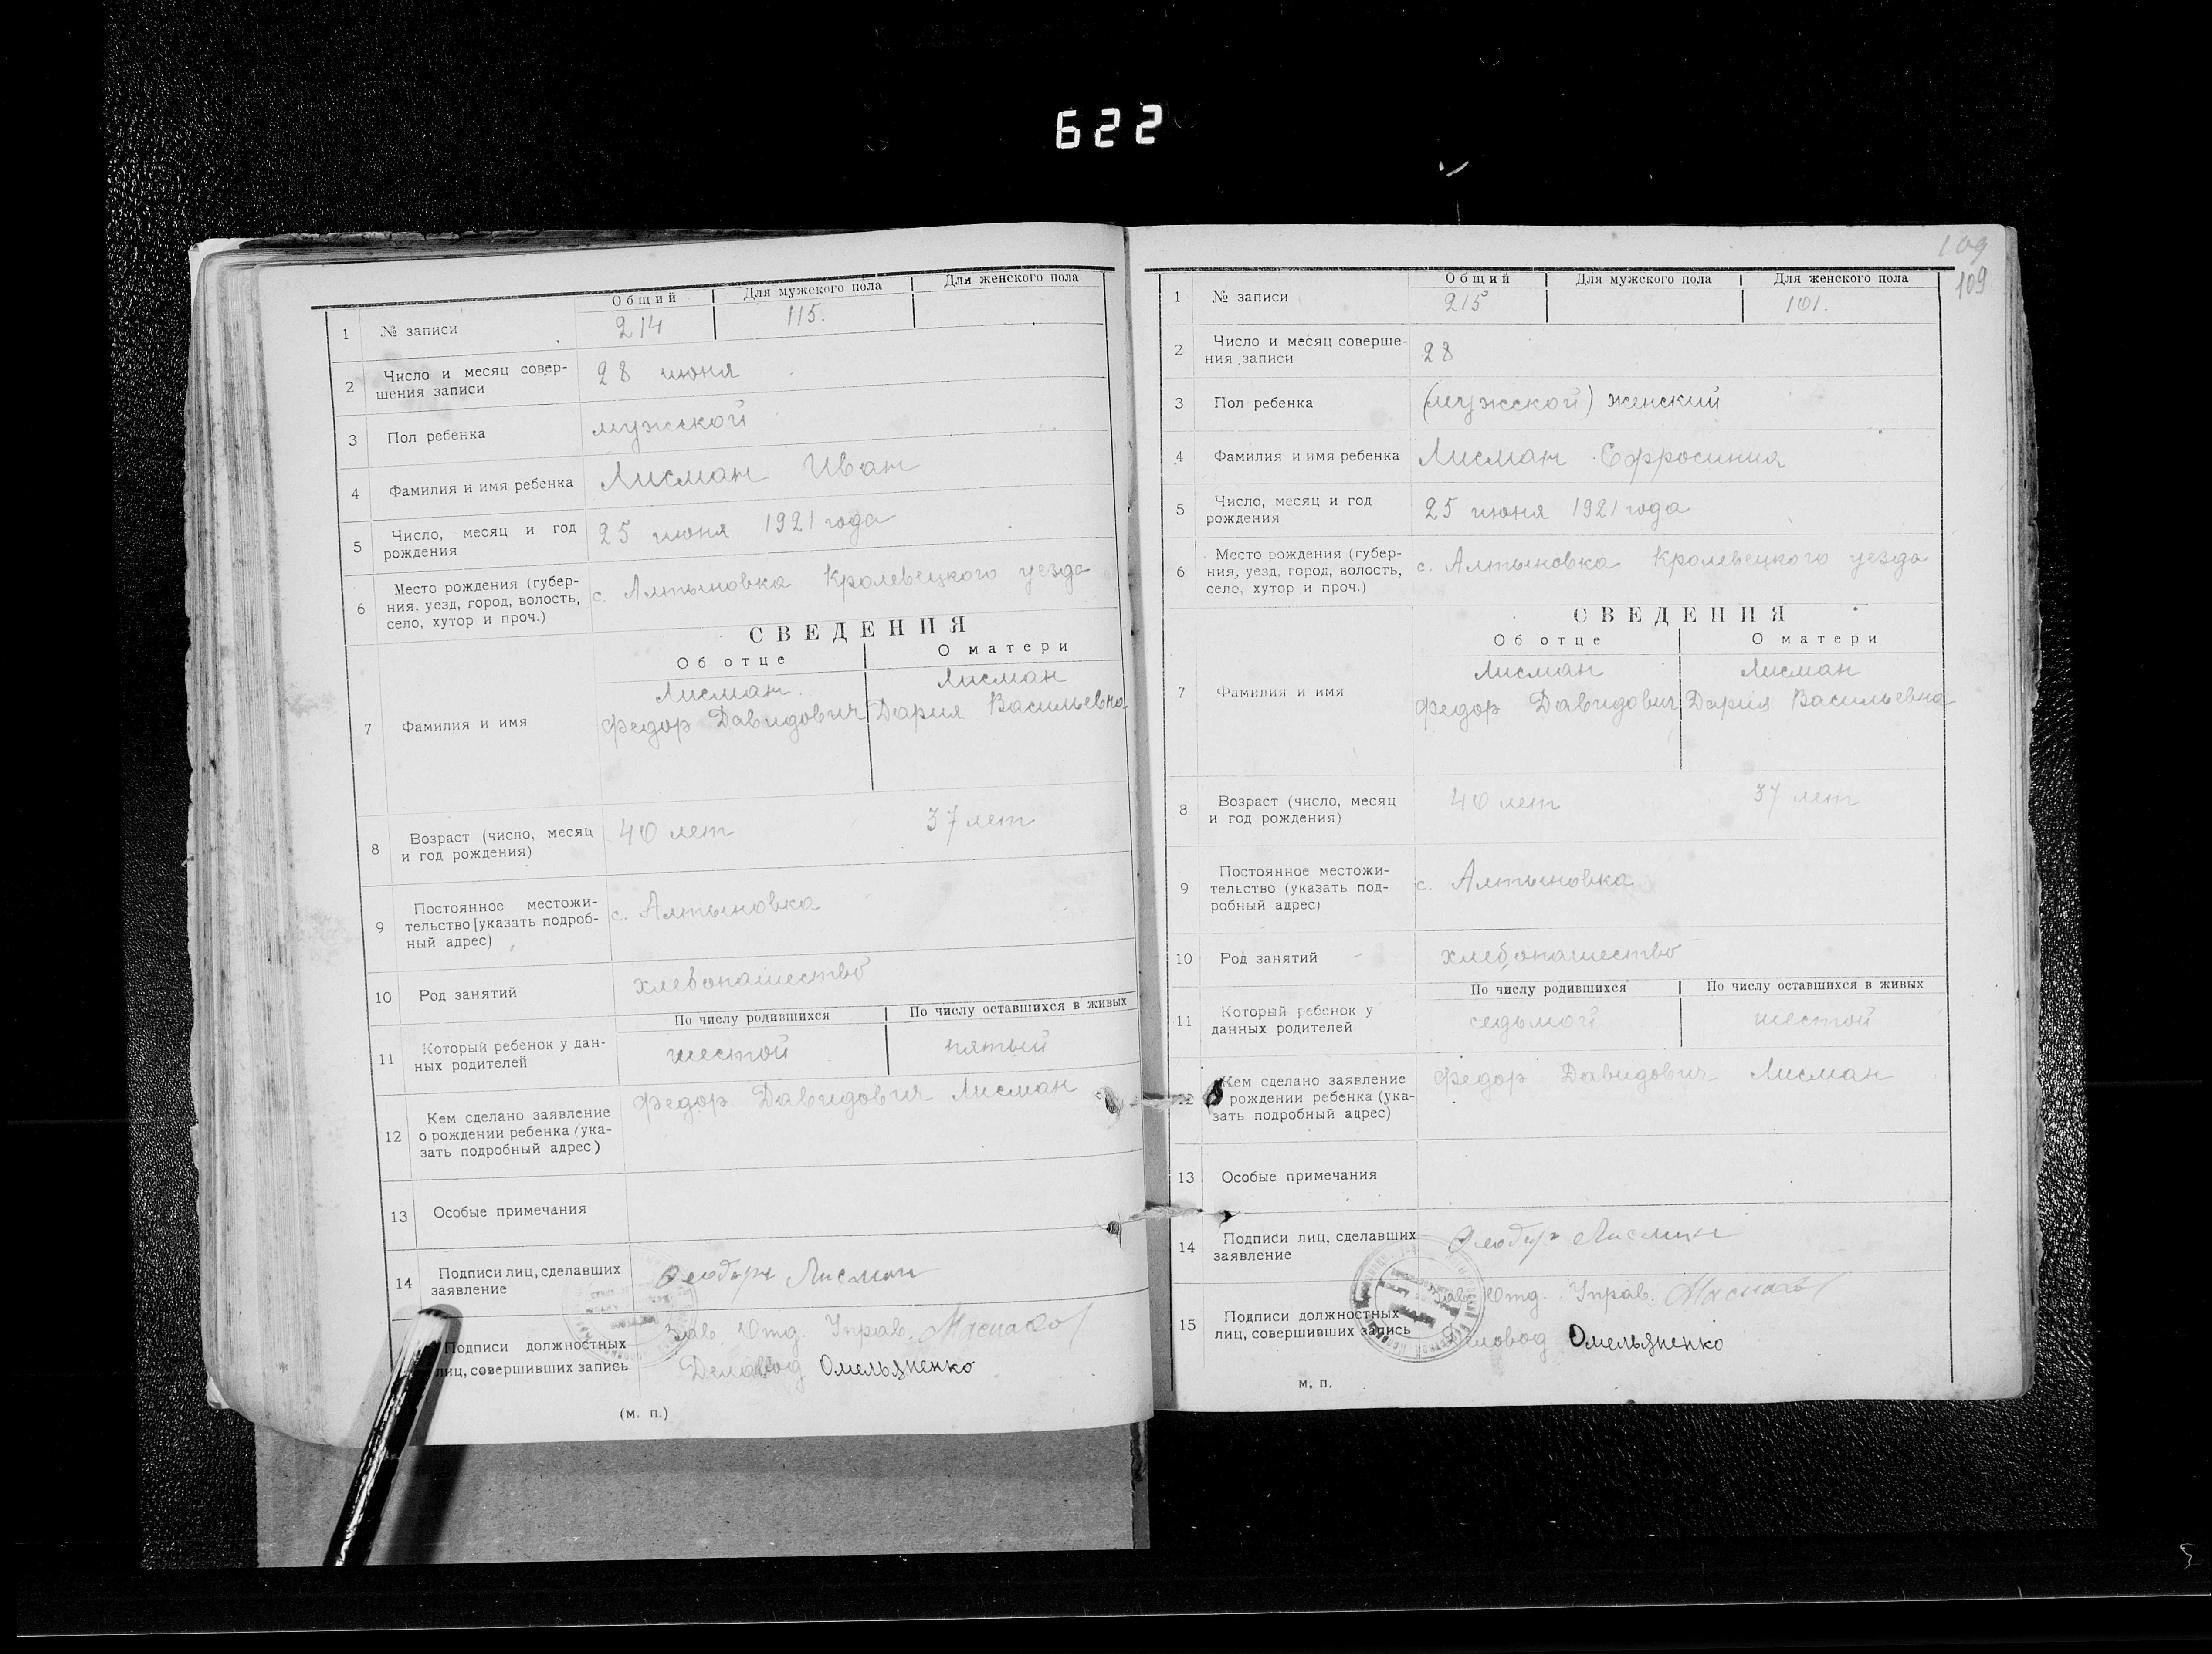 622
Общий Для мужского пола Для женского пола
1 № записи 214 115.
2 Число и месяц совер-
шения записи 28 июня
3 Пол ребенка мужской
4 Фамилия и имя ребенка Лисман Иван
5 Число, месяц и год
рождения 25 июня 1921 года
6 Место рождения (губер-
ния, уезд, город, волость,
село, хутор и проч.) с. Алтыновка Кролевецкого уезда
СВЕДЕНИЯ
Об отце О матери
Лисман Лисман
7 Фамилия и имя Федор Давидович Дария Васильевна
8 Возраст (число, месяц
и год рождения) 40 лет 37 лет
9 Постоянное местожи-
тельство [указать подроб-
ный адрес) с. Алтыновка
10 Род занятий хлебопашество
По числу родившихся По числу оставшихся в живых
11 Который ребенок у дан-
ных родителей шестой пятый
12 Кем сделано заявление
о рождении ребенка (ука-
зать подробный адрес) Федор Давидович Лисман
13 Особые примечания
14 Подписи лиц, сделавших
заявление Феодоръ Лисман
Подписи должностных
лиц, совершивших запись Зав. Отд. Управ.
Деловод Омельяненко
(м. п.)
109
109
Общий Для мужского пола Для женского пола
1 № записи 215 101.
2 Число и месяц соверше-
ния записи 28
3 Пол ребенка (мужской) женский
4 Фамилия и имя ребенка Лисман Ефросиния
5 Число, месяц и год
рождения 25 июня 1921 года
6 Место рождения (губер-
ния, уезд, город, волость,
село, хутор и проч.) с. Алтыновка Кролевецкого уезда
СВЕДЕНИЯ
Об отце О матери
Лисман Лисман
7 Фамилия и имя Федор Давидович Дария Васильевна
8 Возраст (число, месяц
и год рождения) 40 лет 37 лет
9 Постоянное местожи-
тельство (указать под-
робный адрес) с. Алтыновка
10 Род занятий хлебопашество
По числу родившихся По числу оставшихся в живых
11 Который ребенок у
данных родителей седьмой шестой
12 Кем сделано заявление
рождении ребенка (ука-
зать подробный адрес) Федор Давидович Лисман
13 Особые примечания
14 Подписи лиц, сделавших
заявление Феодор Лисман
15 Подписи должностных
лиц, совершивших запись Зав. Отд. Управ.
Деловод Омельяненко
м. п.